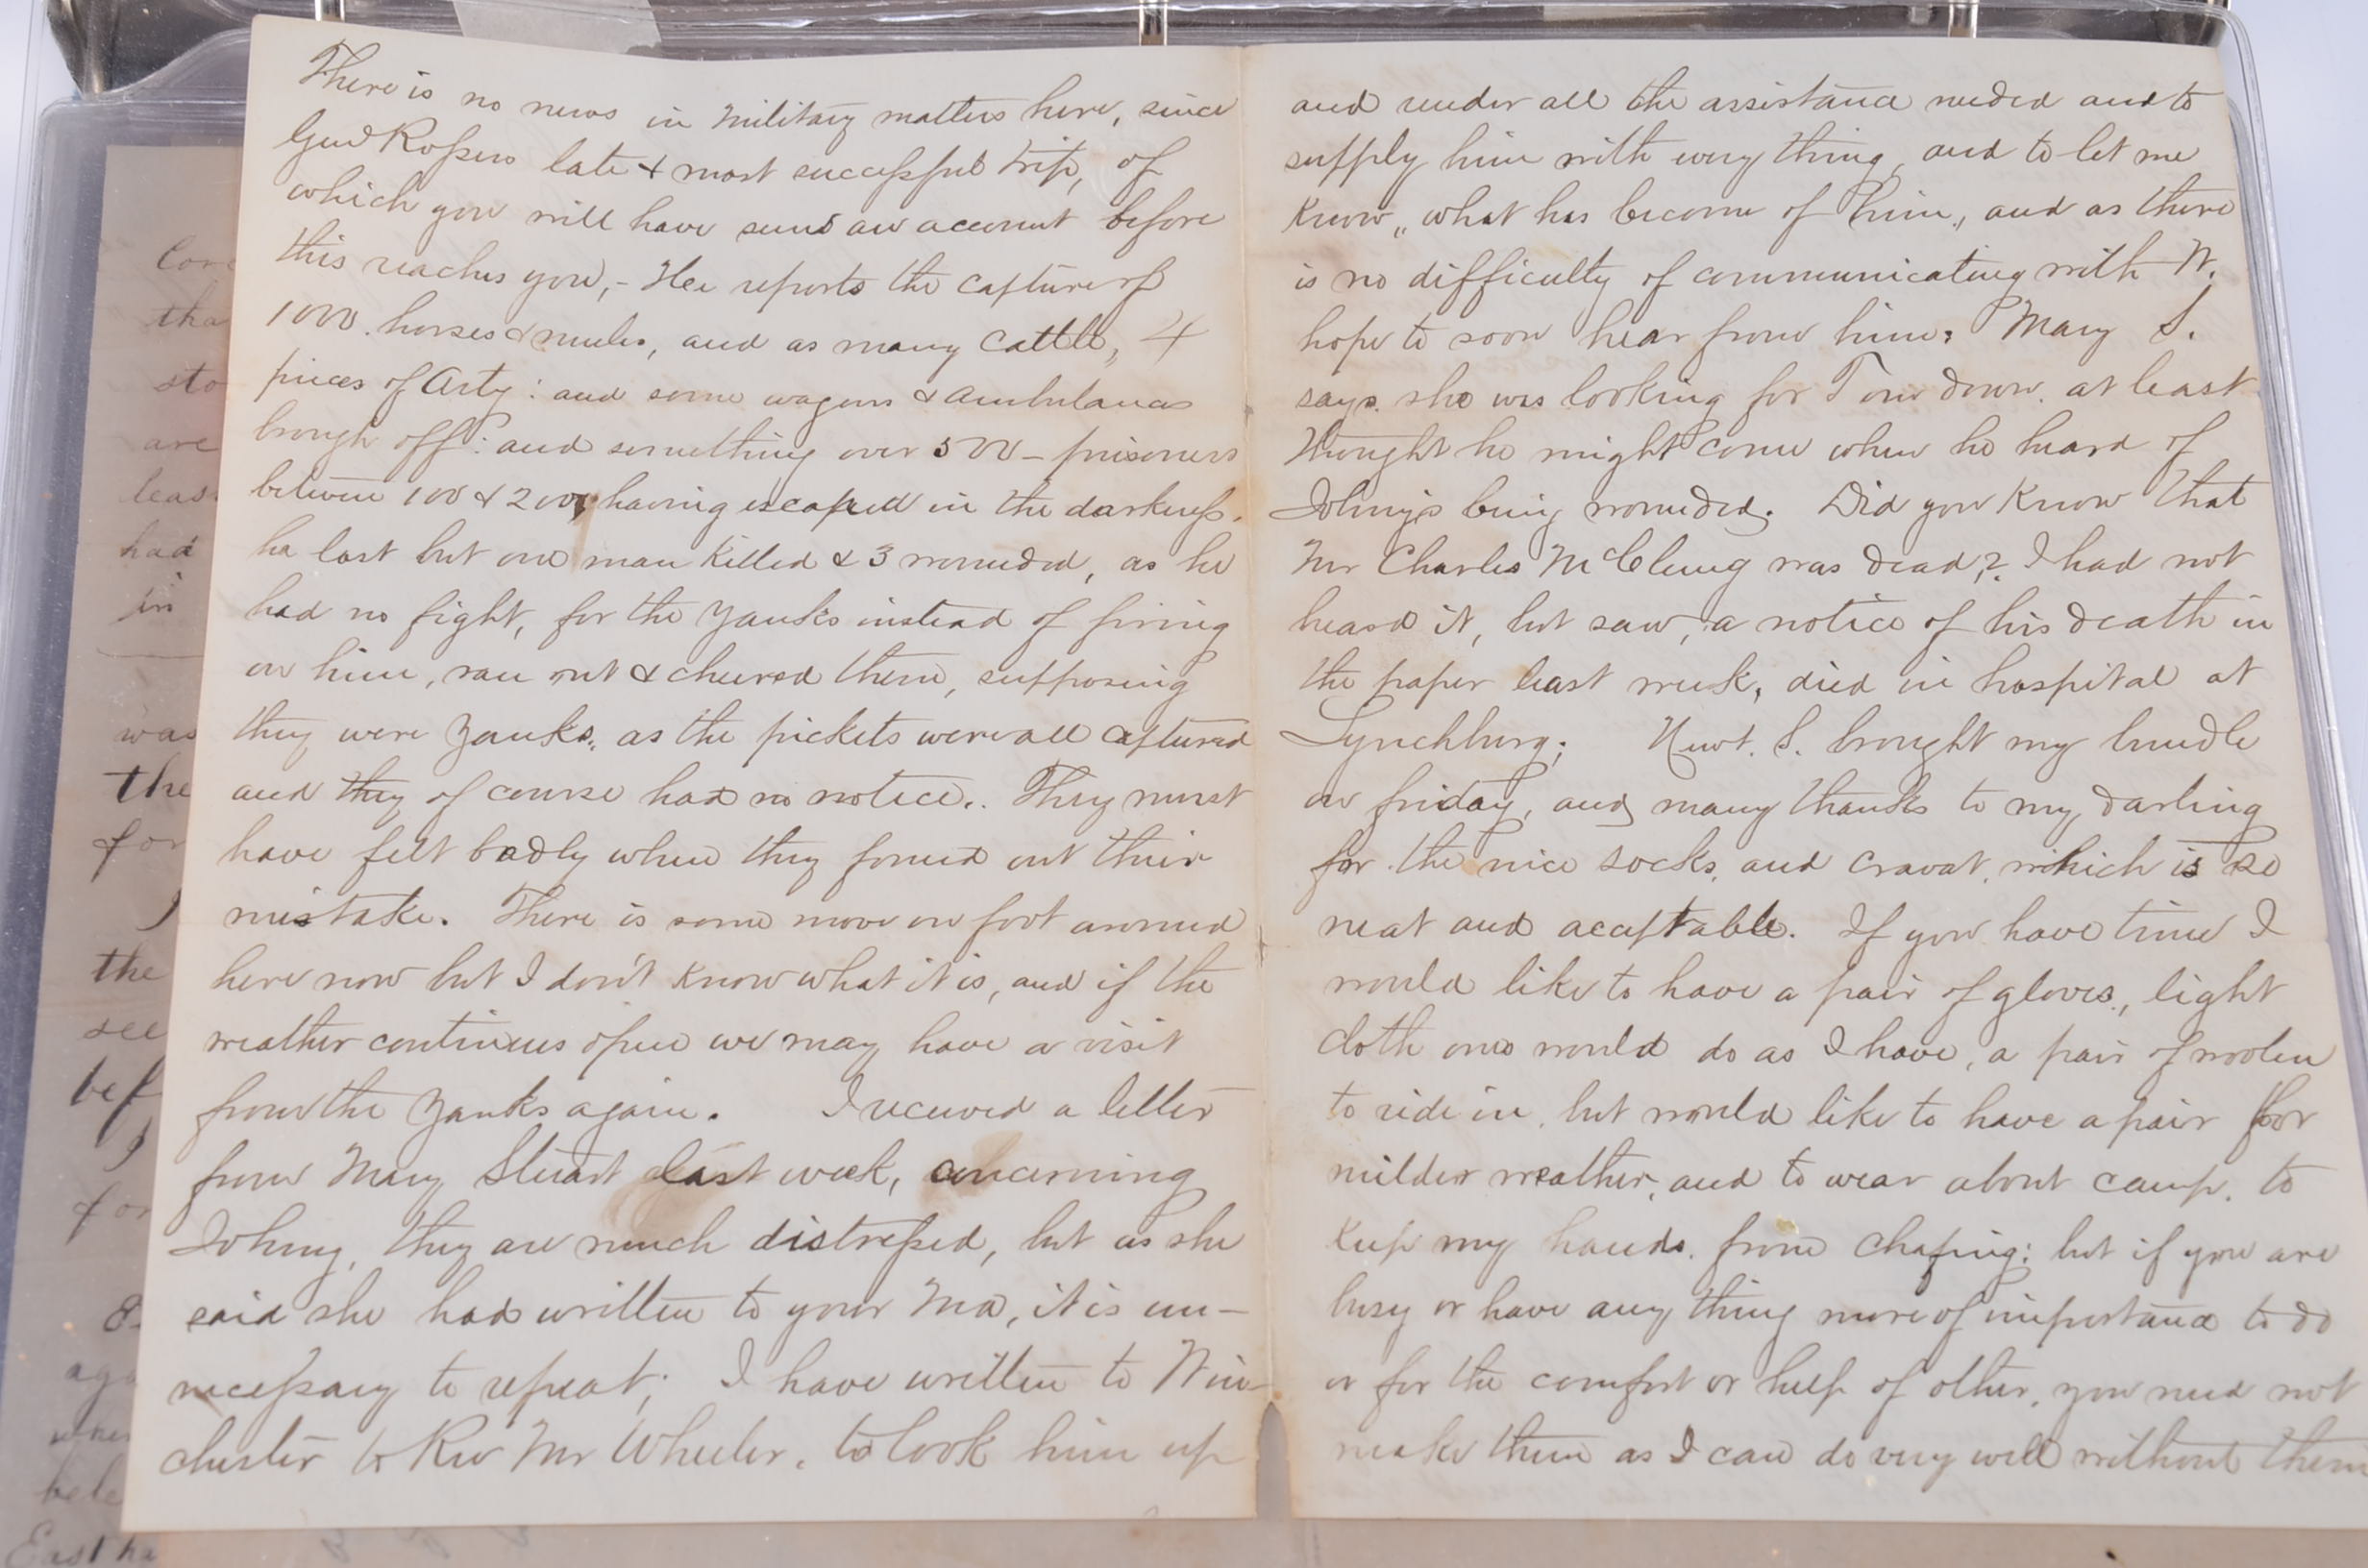 There is no news in military matters here, since
Genl Rossers late & most successful trip, of
which you will have seen an account before
this reaches you,- Hee reports the capture of
1000. horses & mules, and as many cattle, 4
pieces of Arty: and some wagons & ambulances
brough off: and something over 500 - prisoners
between 100 & 200, having escaped in the darkness.
he lost but one man killed & 3 wounded, as he
had no fight, for the Yanks instead of firing
on him, ran out & cheered them, supposing
they were Yanks, as the pickets were all captured
and they of course had no notice.. They must
have felt badly when they found out their
mistake. There is some move on foot around
here now but I don't know what it is, and if the
weather continues open we may have a visit
from the Yanks again. I received a letter
from Mary Stuart last week, concerning
Johny, they are much distressed, but as she
said she had written to your Ma, it is un-
necessary to repeat; I have written to Win-
chester to Rev Mr Wheeler, to look him up
and render all the assistance needed and to
supply him with every thing, and to let me
know,, what has become of him,, and as there
is no difficulty of communicating with W.
hope to soon hear from him: Mary S.
says. she was looking for Tom down. at least
thought he might come when he heard of
Johny's being wounded. Did you know that
Mr Charles McClung was dead,? I had not
heard it, but saw, a notice of his death in
the paper last week, died in hospital at
Lynchburg; Newt. S. brought my bundle
on friday, and many thanks to my darling
for the nice socks, and cravat, which is so
neat and aceptable. If you have time I
would like to have a pair of gloves., light
cloth ones would do as I have, a pair of woolen
to ride in, but would like to have a pair for
milder weather, and to wear about camp, to
keep my hands. from chaping: but if you are
busy or have any thing more of importance to do
or for the comfort or help of other, you need not
make them as I can do very well without them
Cor
tha
sto
are
leas
had
in
was
the
for
I
the
see
bef
I
for
aga
bele
East ha